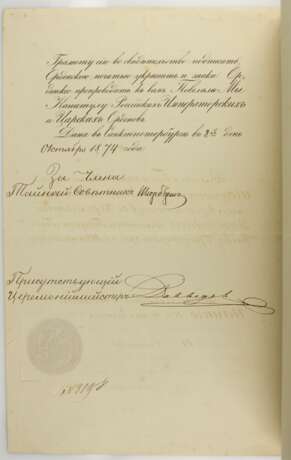 Грамоту сію во свидѣтельство подписать,
Орденскою печатью укрѣпить и знаки Ор-
денскіе препроводить къ вамъ Повелѣли Мы
Капитулу Россійскихъ Императорскихъ
и Царскихъ Орденовъ.
Дана въ Санктпетербургѣ въ день
Октября 1874 года
За Члена
Тайный Совѣтникъ
Присутствующій
Церемоніймейстеръ Давыдовъ